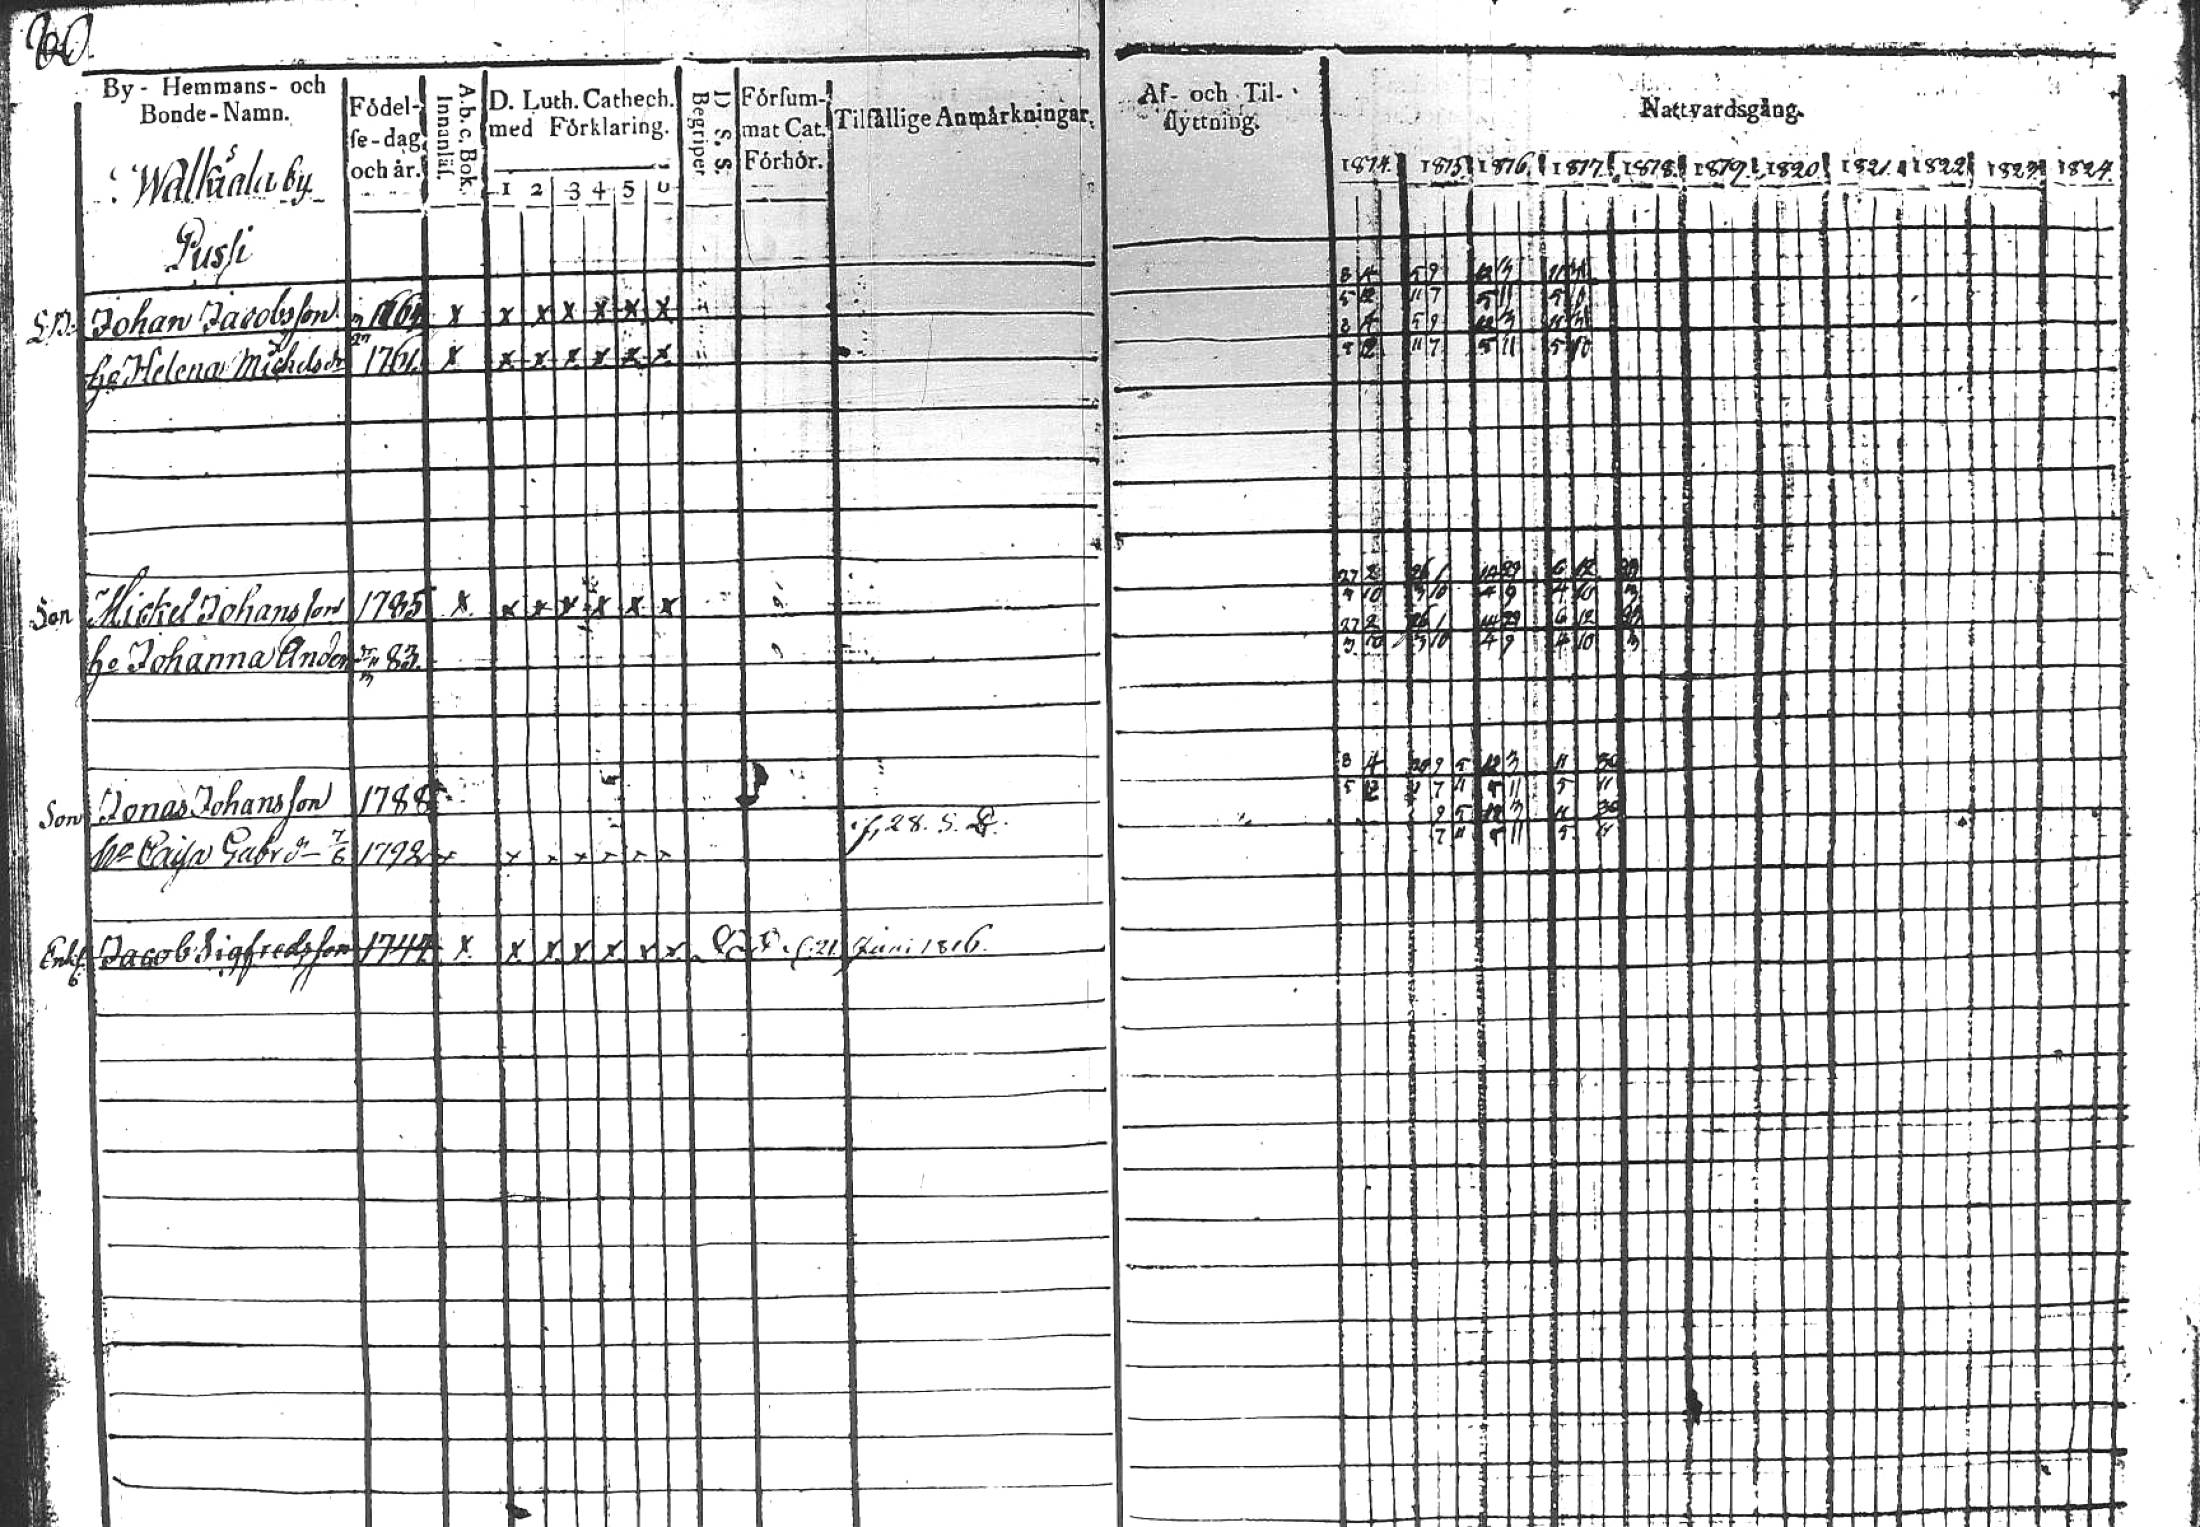 60.
By - Hemmans - och
Bonde - Namn.
Födel-
se - dag
och år.
A. b. c. Bok.
Innanläs.
D. Luth. Cathech.
med Förklaring.
1 2 3 4 5 6
D. S. S.
Begriper
Försum-
mat Cat.
Förhör.
Tilfällige Anmärkningar.
Af- och Til-
flyttning.
Nattvardsgång.
1814. 1815. 1816. 1817. 1818. 1819. 1820. 1821. 1822. 1823. 1824.
by
Pussi
Johan Jacobsson x x x x x x x
3 4 5 9 12 3 11
5 12 11 7 5 11 5
Hu Helena Mickelsdr 1761. x x x x x x x
3 4 5 9 12 3 11
5 12 11 7 5 11 5
Son Mickel Johansson 1785 x x x x x x x
27 2 26 1 14 29 6 12
3 10 3 10 4 9 4 10 3
Hu Johanna Anders 83.
27 2 26 1 14 29 6 12
3 10 3 10 4 9 4 10 3
Son Jonas Johansson 1788
3 4 9 5 12 3 11 30
5 12 7 11 5 11 5 11
Hu Caisa Gabr dr 7/6 1792 x x x x x x x
28. 5.
9 5 12 3 11 30
7 11 5 11 5 11
Enkl. Jacob Sigfredsson 1744 x x x x x x x
21 Juni 1816.